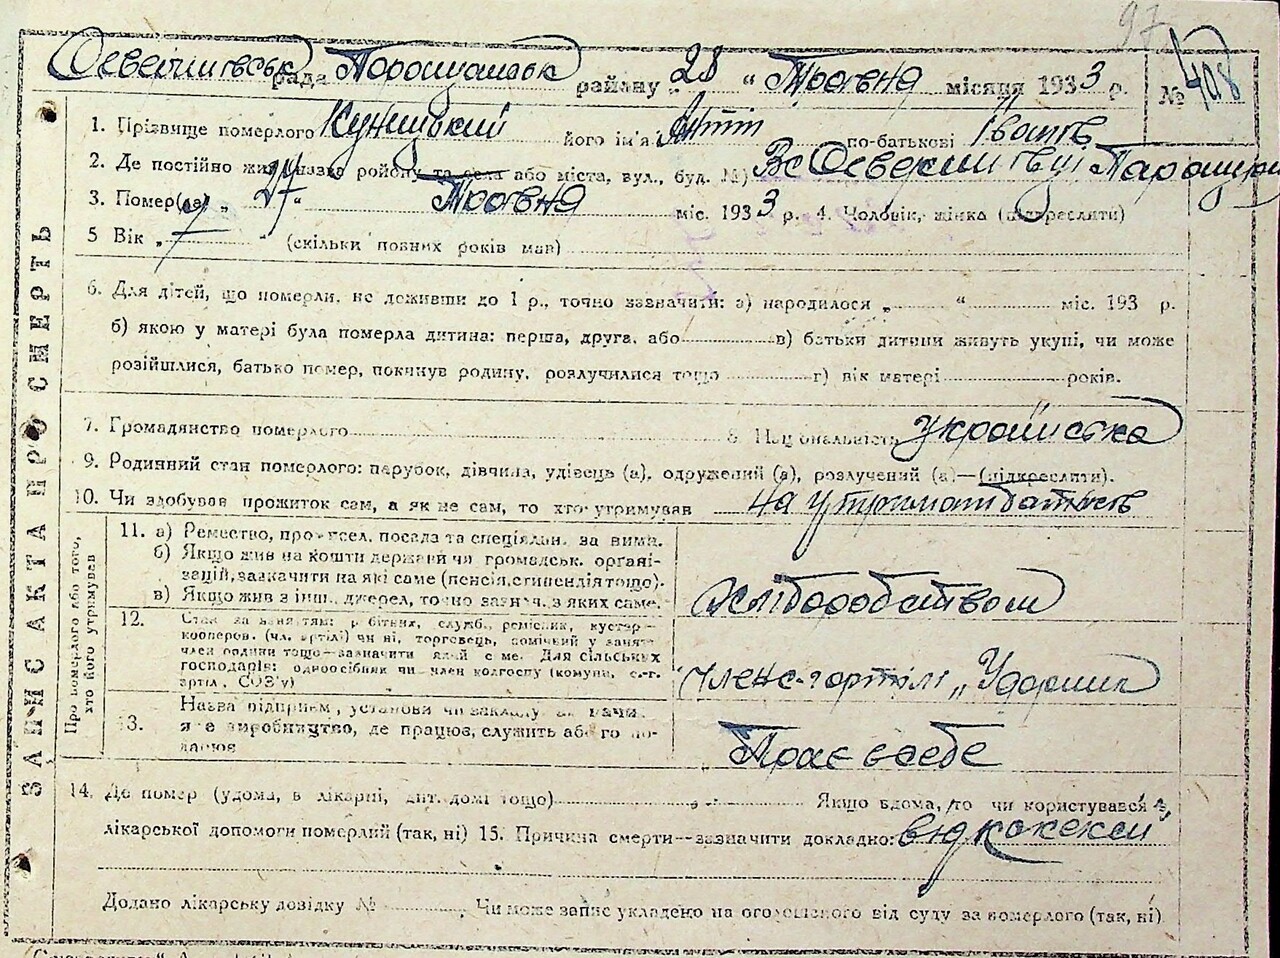 97
рада районув „28 “ Травня місяця 1933 р. №
1. Прізвище померлого Куницький його ім'я по-батькові Іванів
2. Де постійно жив назва району та села або міста, вул., буд. №)
3. Помер(ла) „ 27 “ Травня міс. 1933 р. 4. Чоловік, жінка (підкреслити)
5 Вік „ “ (скільки повних років мав)
6. Для дітей, що померли, не доживши до 1 р., точно зазначити: а) народилося „ “ міс. 193 р.
б) якою у матері була померла дитина: перша, друга, або в) батьки дитини живуть укупі, чи може
розійшлися, батько помер, покинув родину, розлучилися тощо г) вік матері років.
7. Громадянство померлого 8. Національність українська
9. Родинний стан померлого: парубок, дівчина, удівець (а), одружений (а), розлучений (а)—(підкреслити).
10. Чи здобував прожиток сам, а як не сам, то хто утримував на утриманні батьків
ЗАПИС АКТА ПРО СМЕРТЬ
Про померлого або того,
хто його утримував
11. а) Ремество, профсел. посада та спеціяльн. за вима.
б) Якщо жив на кошти держави чи громадськ. органі-
зацій, зазначити на які саме (пенсія, стипендія тощо).
в) Якщо жив з інш. джерел, точно зазнач. з яких саме.
хліборобством
12. Стан за заняттям: робітник, служб., ремісник, кустар—
кооперов. (чл. артілі) чи ні, торговець, помічний у занятт.
член родини тощо—зазначити який саме. Для сільських
господарів: одноосібник чи член колгоспу (комуна, с.-г.
артіл., СОЗ'у)
член с-г артілі „Ударник
13. Назва підприєм., установи чи закладу,
яке виробництво, де працює, служить або го по-
Прає в себе
14. Де помер (удома, в лікарні, дит. домі тощо) Якщо вдома, то чи користувався з
лікарської допомоги померлий (так, ні) 15. Причина смерти—зазначити докладно: від кохексії
Додано лікарську довідку № Чи може запис укладено на оголошеного від суду за померлого (так, ні)